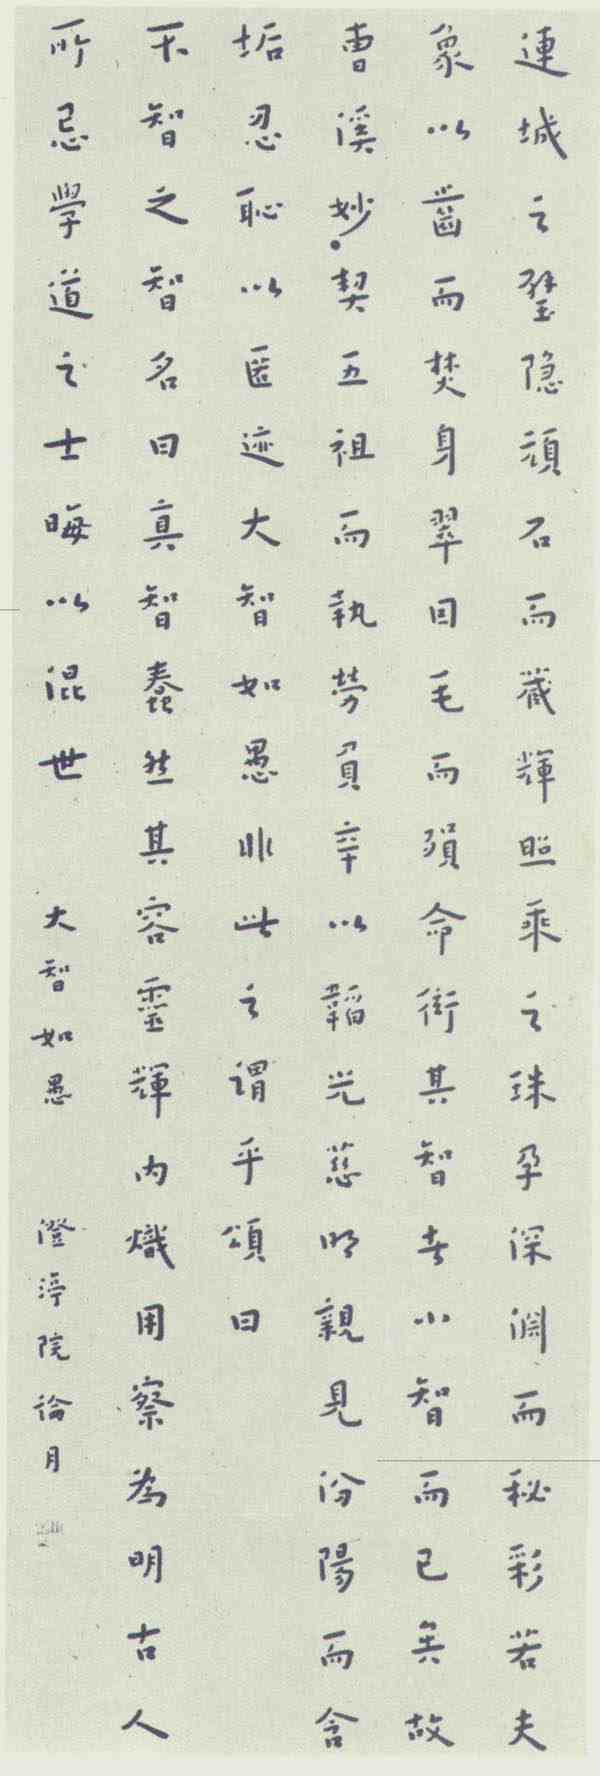 連城之璧隐頑石而藏輝照乘之珠孕深淵而秘彩若夫
象以齒而焚身翠因毛而殞命衒其智者小智而已矣故
曹溪妙契五祖而執勞負辛以韜光慈明親見汾陽而含
垢忍恥以匿迹大智如愚非此之謂乎頌曰
不智之智名曰真智蠢然其容靈輝内熾用察為明古人
所忌學道之士晦以混世
大智如愚
澄渟院諭月